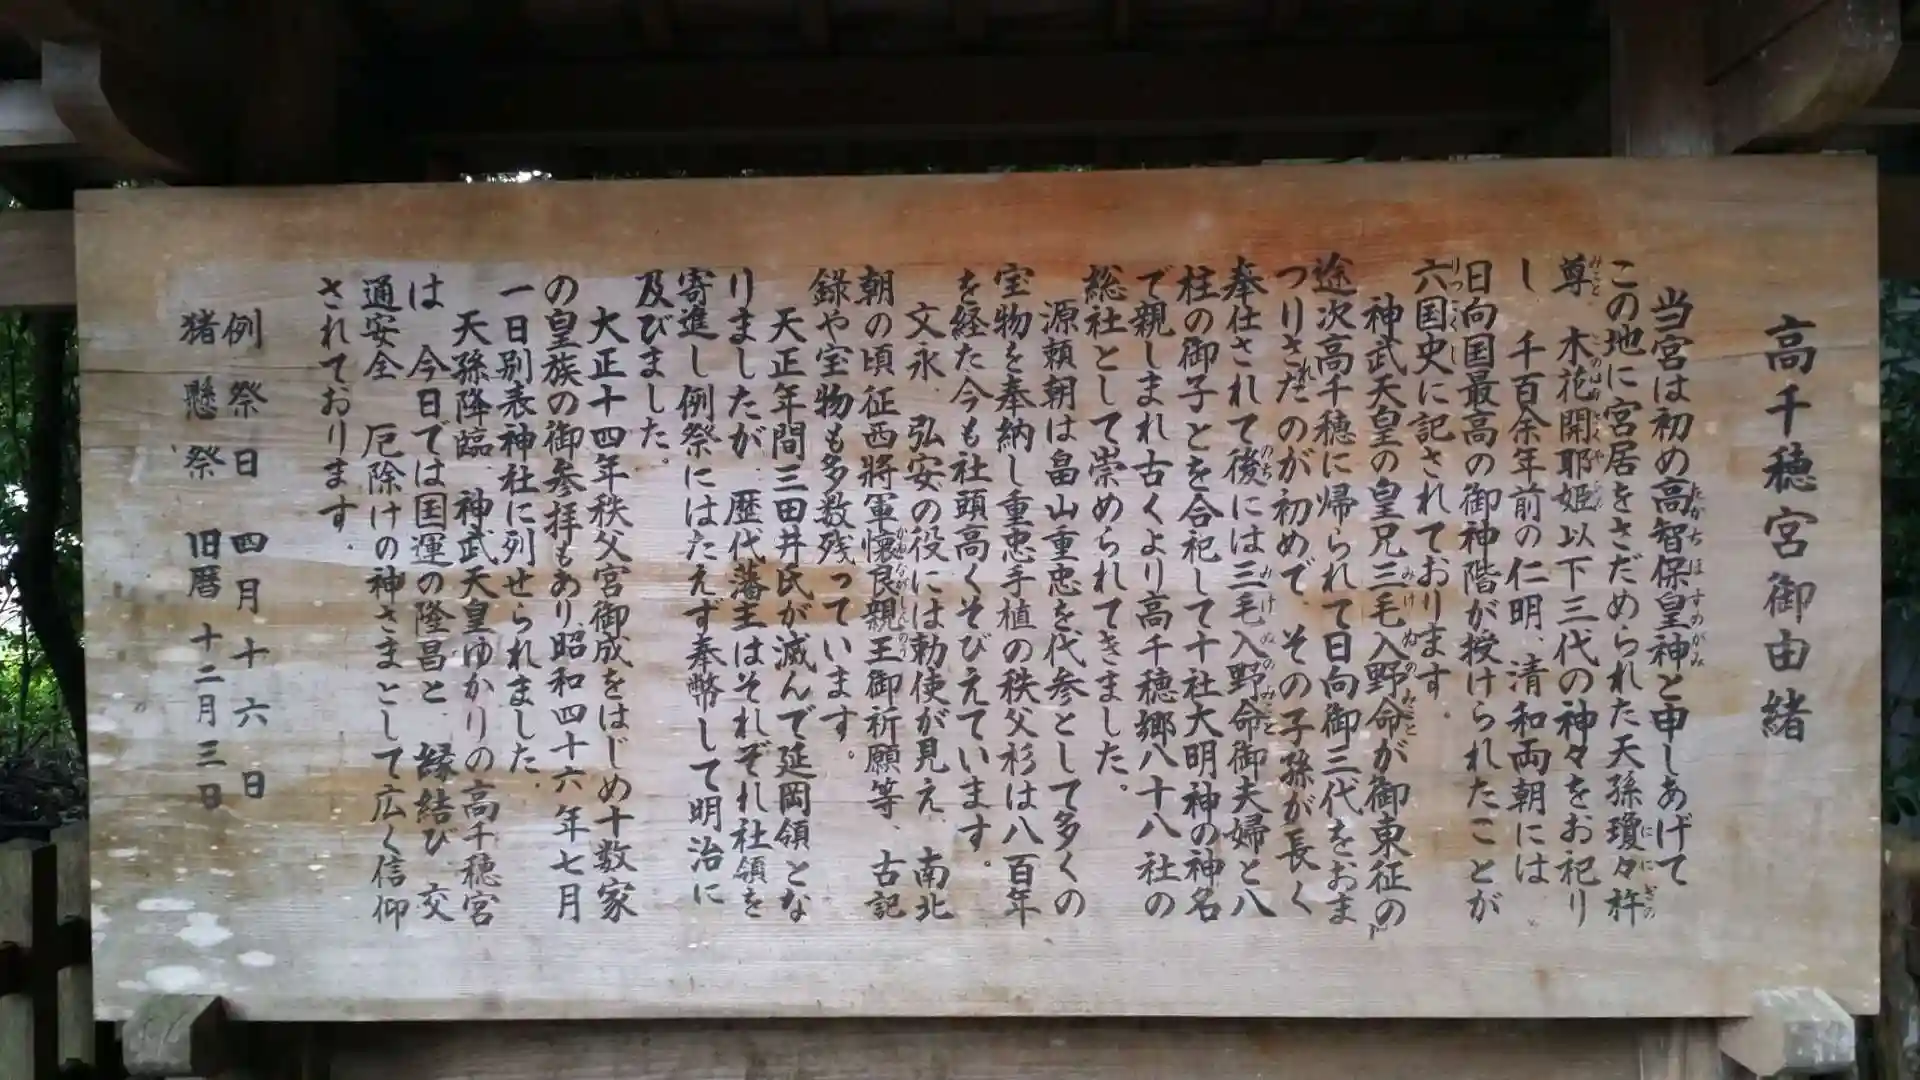 高千穂宮御由緒
当宮は初め高智保皇神と申しあげて
この地に宮居をさだめられた天孫瓊々杵
尊 木花開耶姫以下三代の神々をお祀り
し 千百余年前の仁明、清和両朝には
日向国最高の御神階が授けられたことが
六国史に記されております.
神武天皇の皇兄三毛入野命が御東征の
途次高千穂に帰られて日向御三代をおま
つりされたのが初めで、その子孫が長く
奉仕されて後には三毛入野命御夫婦と八
柱の御子とを合祀して十社大明神の神名
で親しまれ古くより高千穂郷八十八社の
総社として崇められてきました。
源頼朝は畠山重忠を代参として多くの
宝物を奉納し重忠手植の秩父杉は八百年
を経た今も社頭高くそびえています。
文永、弘安の役には勅使が見え、南北
朝の頃征西将軍懐良親王御祈願等、古記
録や宝物も多数残っています。
天正年間三田井氏が滅んで延岡領とな
りましたが、歴代藩主はそれぞれ社領を
寄進し例祭にはたえず奉幣して明治に
及びました。
大正十四年秩父宮御成をはじめ十数家
の皇族の御参拝もあり昭和四十六年七月
一日別表神社に列せられました.
天孫降臨、神武天皇ゆかりの高千穂宮
は 今日では国運の隆昌と 縁結び 交
通安全 厄除けの神さまとして広く信仰
されております.
例祭日 四月十六日
猪懸祭 旧暦十二月三日